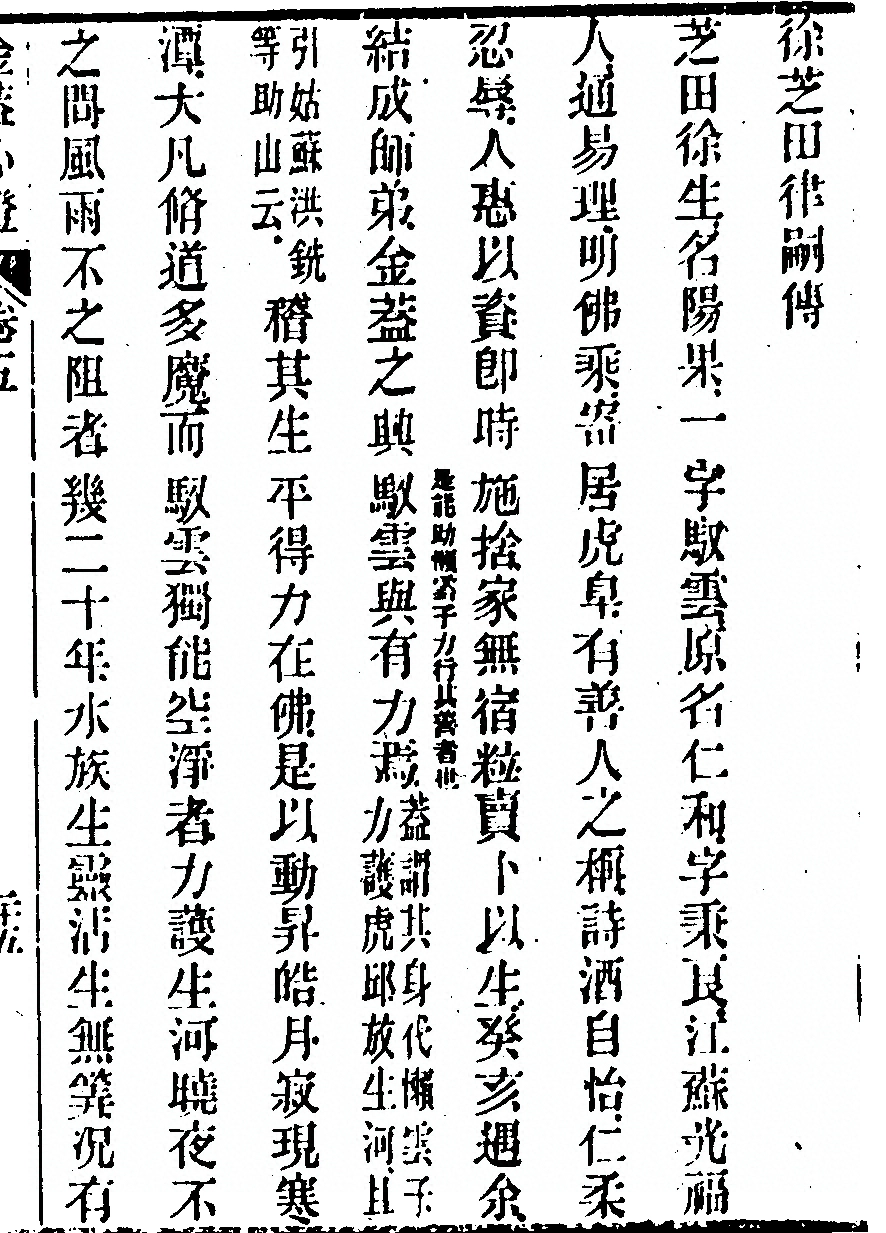 徐芝田律嗣傳
芝田徐生名陽果一字馭雲原名仁和字秉良江蘇光福
人通易理明佛乘嘗居虎阜有善人之稱詩酒自怡仁柔
忍辱人惠以資即時施捨家無宿粒賣卜以生癸亥遇余
是能助懶雲子力行其善者世
結成師弟金葢之興馭雲與有力焉葢謂其身代懶雲子
力護虎邱放生河且
引姑蘇洪銑
等助山云
稽其生平得力在佛是以動昇皓月寂現寒
潭大凡脩道多魔而馭雲獨能空淨者力護生河曉夜不
之間風雨不之阻者幾二十年水族生靈活生無筭況有
金葢心燈 卷五